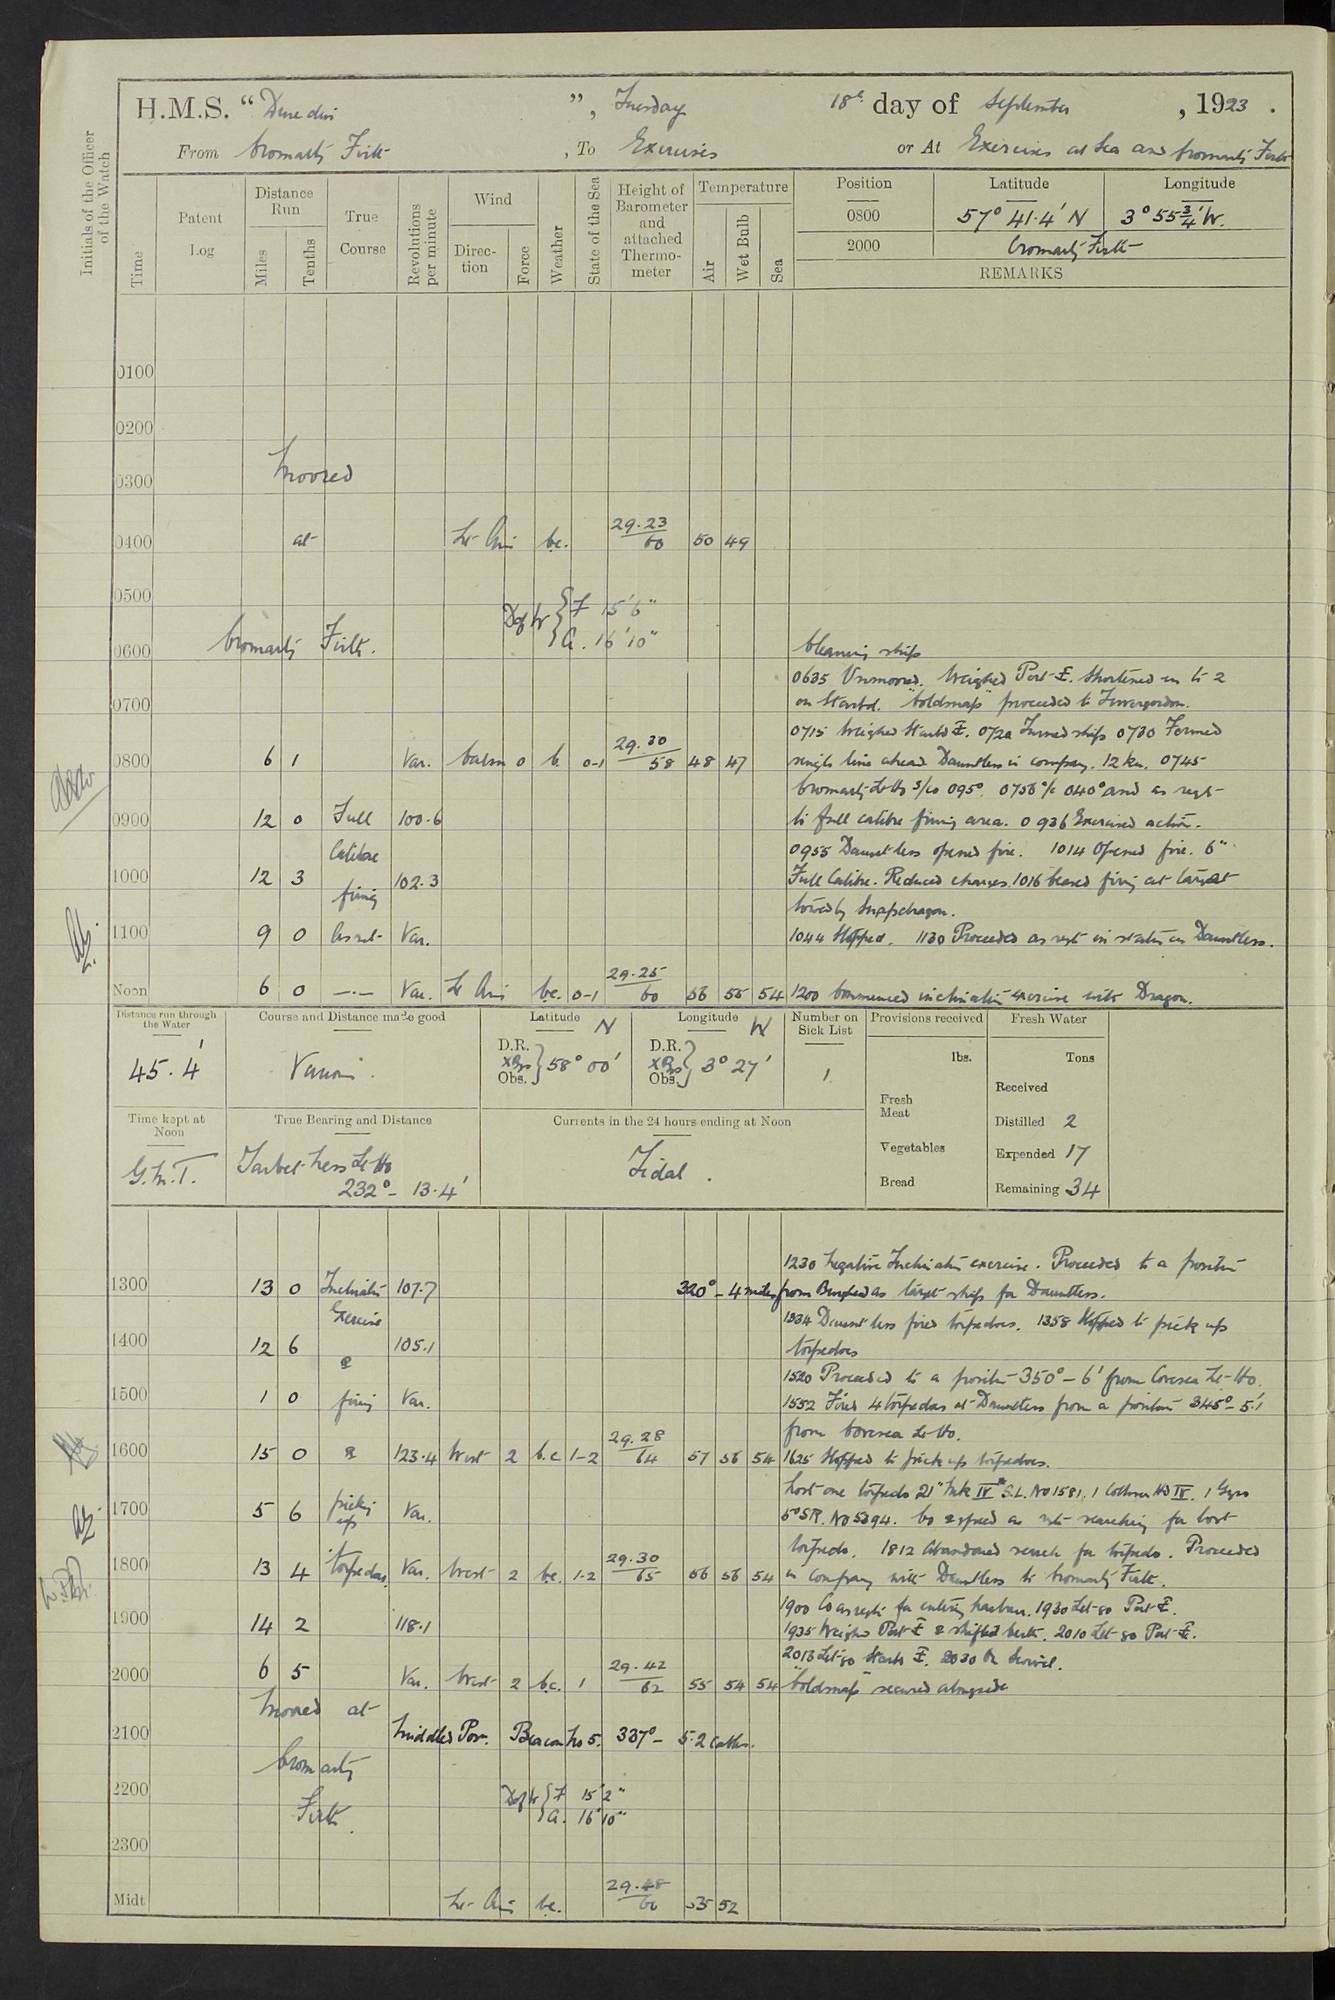 H.M.S. "Dunedin", Tuesday 18th day of September, 1923.
From Cromarty Firth, To Exercises or At Exercises at Sea and Cromarty Firth
Initials of the Officer of the Watch
Time
Patent Log
Distance Run
Miles
Tenths
True Course
Revolutions per minute
Wind
Direction
Force
Weather
State of the Sea
Height of Barometer and attached Thermometer
Temperature
Air
Wet Bulb
Sea
Position Latitude Longitude
0800 57° 41.4' N 3° 55 3/4' W.
2000 Cromarty Firth
REMARKS
0100
0200
Moored
0300
0400 at Lt Airs bc. 29.23/60 50 49
0500
D of W { F 15' 6"
A. 16' 10"
0600 Cromarty Firth.
Cleaning ship
0635 Unmoored. Weighed Port. Shortened in to 2
0700 on Starbd. "Coldsnap" proceeded to Invergordon.
0715 Weighed Starbd. 0720 Turned ship 0730 Formed
0800 6 1 Var. Calm 0 b. 0-1 29.30/58 48 47 single line ahead Dauntless in company. 12 Kn. 0745
Cromarty Lt Ho S/co 095°. 0756 a/c 040° and as reqt
0900 12 0 Full 100.6 to full calibre firing area. 0936 Exercised action.
Calibre 0955 Dauntless opened fire. 1014 Opened fire. 6"
1000 12 3 firing 102.3 Full Calibre. Reduced charges. 1016 Ceased firing at target
towed by Snapdragon.
1100 9 0 As reqt Var. 1044 Stopped. 1130 Proceeded as reqt in station on Dauntless.
Noon 6 0 —.— Var. Lt Airs bc. 0-1 29.25/60 56 55 54 1200 Commenced inclination exercise with Dragon.
Distance run through the Water
45.4'
Course and Distance made good
Various.
Latitude N
D.R. Obs. } 58° 00'
Longitude W
D.R. Obs. } 3° 27'
Number on Sick List
1
Provisions received
lbs.
Fresh Meat
Vegetables
Bread
Fresh Water
Tons
Received
Distilled 2
Expended 17
Remaining 34
Time kept at Noon
G.M.T.
True Bearing and Distance
Tarbet Ness Lt Ho
232° - 13.4'
Currents in the 24 hours ending at Noon
Tidal.
1230 Negative Inclination exercise. Proceeded to a position
1300 13 0 Inclination 107.7 320° - 4 miles from Burghead as target ship for Dauntless.
Exercise 1334 Dauntless fired torpedoes. 1358 Stopped to pick up
1400 12 6 & 105.1 torpedoes
1520 Proceeded to a position 350° - 6' from Covesea Lt Ho.
1500 1 0 firing Var. 1552 Fired 4 torpedoes at Dauntless from a position 345° - 5.1'
from Covesea Lt Ho.
1600 15 0 & 123.4 West 2 b.c 1-2 29.28/64 57 56 54 1625 Stopped to pick up torpedoes.
Lost one torpedo 21" Mk IV* S.L. No 1581, 1 Collision Hd IV. 1 Gyro
1700 5 6 picking up Var. No 5394. Co & speed as reqt searching for lost
torpedo. 1812 Abandoned search for torpedo. Proceeded
1800 13 4 torpedoes. Var. West 2 bc. 1-2 29.30/65 56 56 54 in company with Dauntless to Cromarty Firth.
1900 Co as reqt for entering harbour. 1930 Let go Port.
1900 14 2 118.1 1935 Weighed Port & shifted berth. 2010 Let go Port.
2013 Let go Starbd. 2030
2000 6 5 Var. West 2 b.c. 1 29.42/62 55 54 54 "Coldsnap" secured alongside
Moored at
2100 Middle Posn. Beacon No 5. 337° - 5.2 cables.
Cromarty
2200 D of W { F 15' 2"
Firth. A. 16' 10"
2300
Midt Lt Airs bc. 29.48/60 52